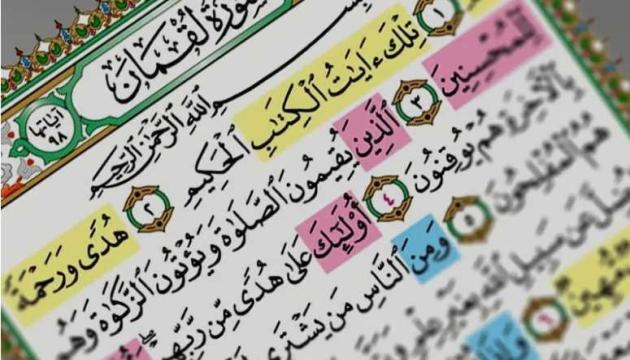 سُورَةُ لُقْمَانَ
بِسْمِ ٱللَّهِ ٱلرَّحْمَٰنِ ٱلرَّحِيمِ
١ تِلْكَ ءَايَٰتُ ٱلْكِتَٰبِ ٱلْحَكِيمِ ٢ هُدًى وَرَحْمَةً
لِّلْمُحْسِنِينَ ٣ ٱلَّذِينَ يُقِيمُونَ ٱلصَّلَوٰةَ وَيُؤْتُونَ ٱلزَّكَوٰةَ وَهُم
بِٱلْءَاخِرَةِ هُمْ يُوقِنُونَ ٤ أُوْلَٰٓئِكَ عَلَىٰ هُدًى مِّن رَّبِّهِمْ
هُمُ ٱلْمُفْلِحُونَ ٥ وَمِنَ ٱلنَّاسِ مَن يَشْتَرِى
عَن سَبِيلِ ٱللَّهِ بِغَيْرِ عِلْمٍ
٦